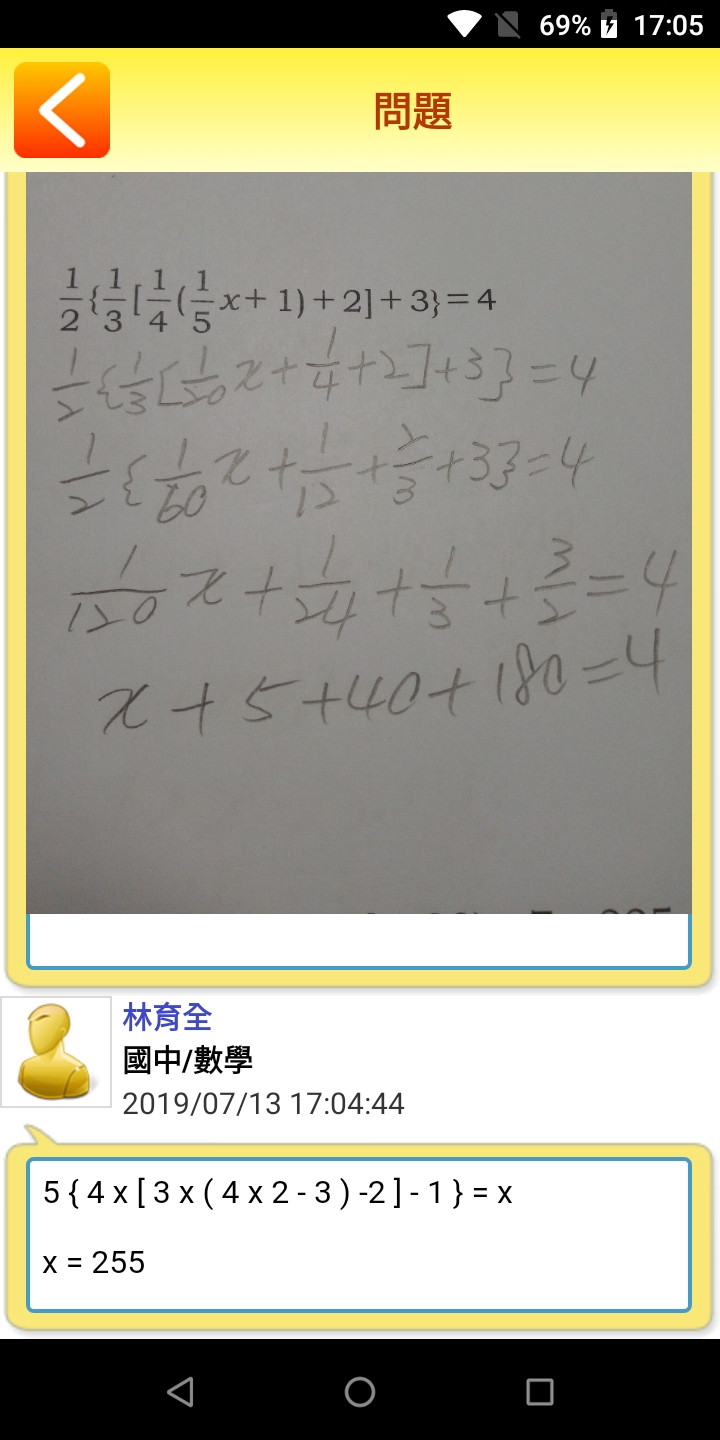 69% 17:05
問題
1/2{1/3[1/4(1/5x+1)+2]+3}=4
1/2{1/3[1/20x+1/4+2]+3}=4
1/2{1/60x+1/12+2/3+3}=4
1/120x+1/24+1/3+3/2=4
x+5+40+180=4
林育全
國中/數學
2019/07/13 17:04:44
5 { 4 x [ 3 x ( 4 x 2 - 3 ) -2 ] - 1 } = x
x = 255